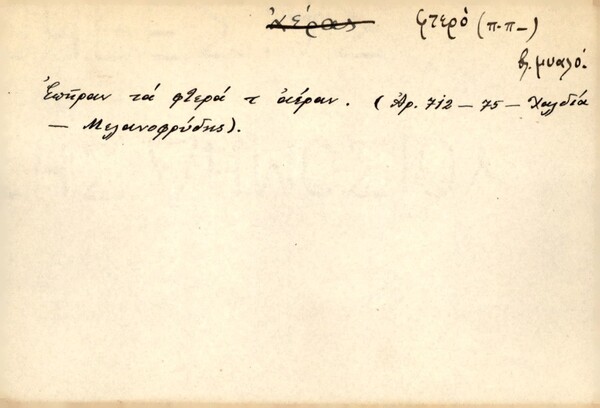 ἀέρας φτερὸ (π.π–)
βλ. μυαλό.
Ἐπῆραν τά φτερά τ' ἀέραν. (Ἀρ. 712 – 75 – Χαλδία
– Μελανοφρύδης).